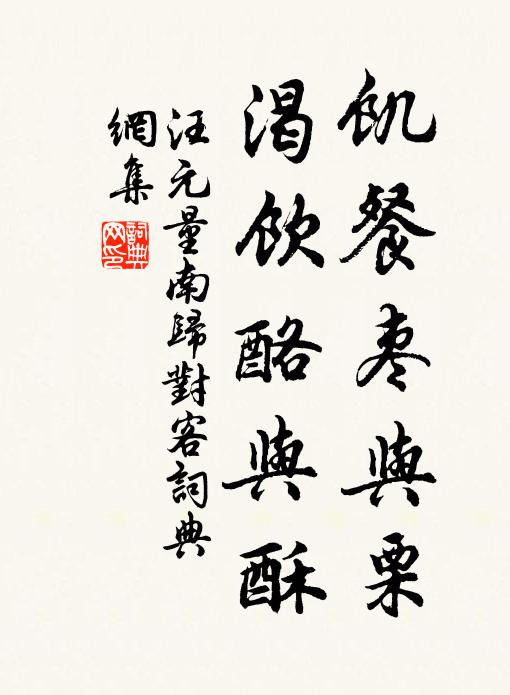 飢餐棗與栗
渴飲酪與酥
汪元量南歸對客詞典
網集
詞典網印